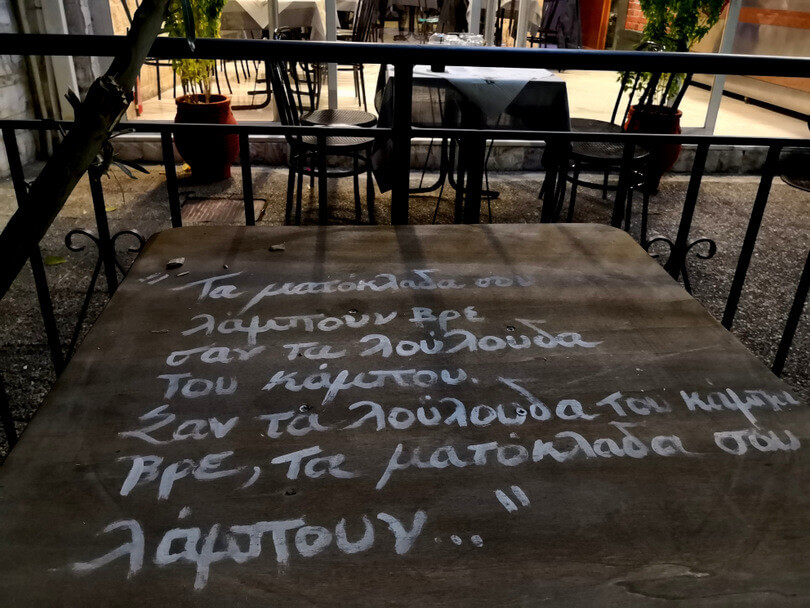 "Τα ματόκλαδα σου
λάμπουν βρε
σαν τα λούλουδα
του κάμπου.
Σαν τα λούλουδα του κάμπου
βρε, τα ματόκλαδα σου
λάμπουν..."